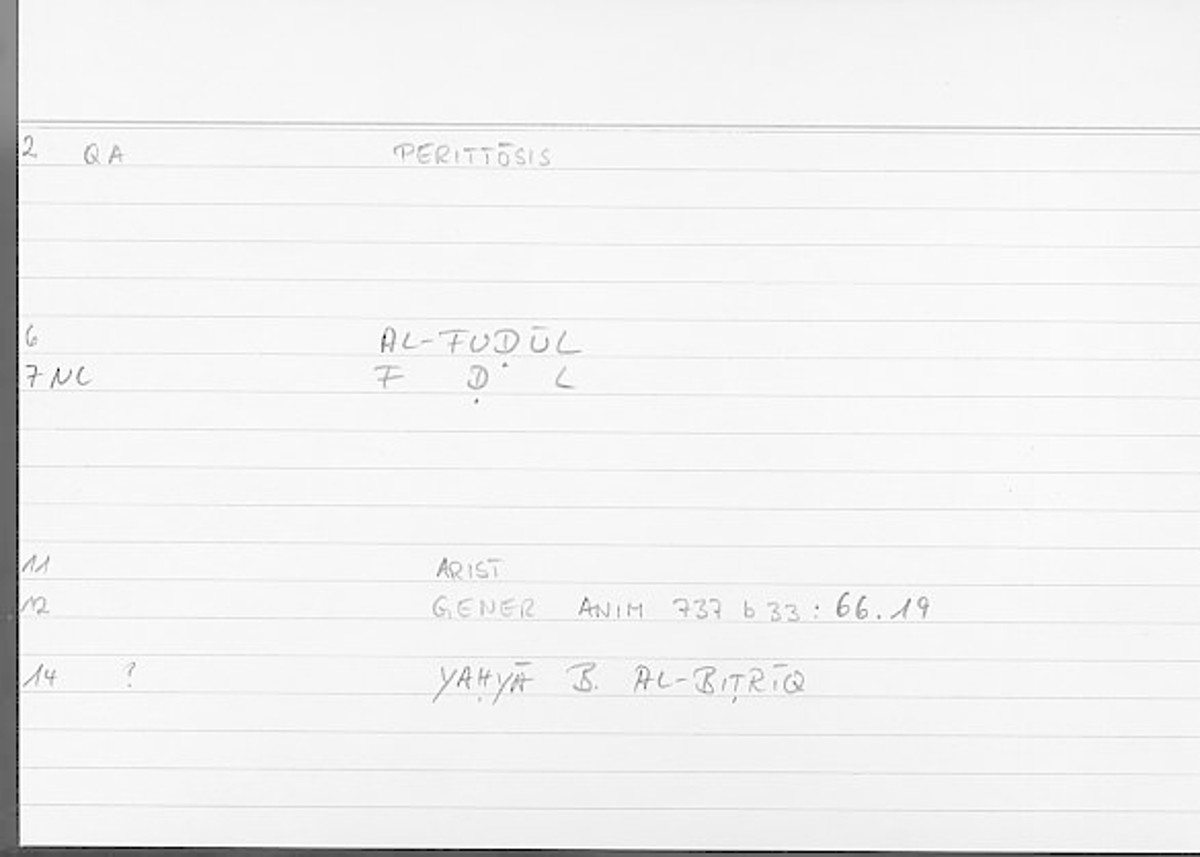 2 QA PERITTŌSIS
6 AL-FUḌŪL
7 NL F Ḍ L
11 ARIST
12 GENER ANIM 737 b 33 : 66.19
14 ? YAḤYĀ B. AL-BIṬRĪQ